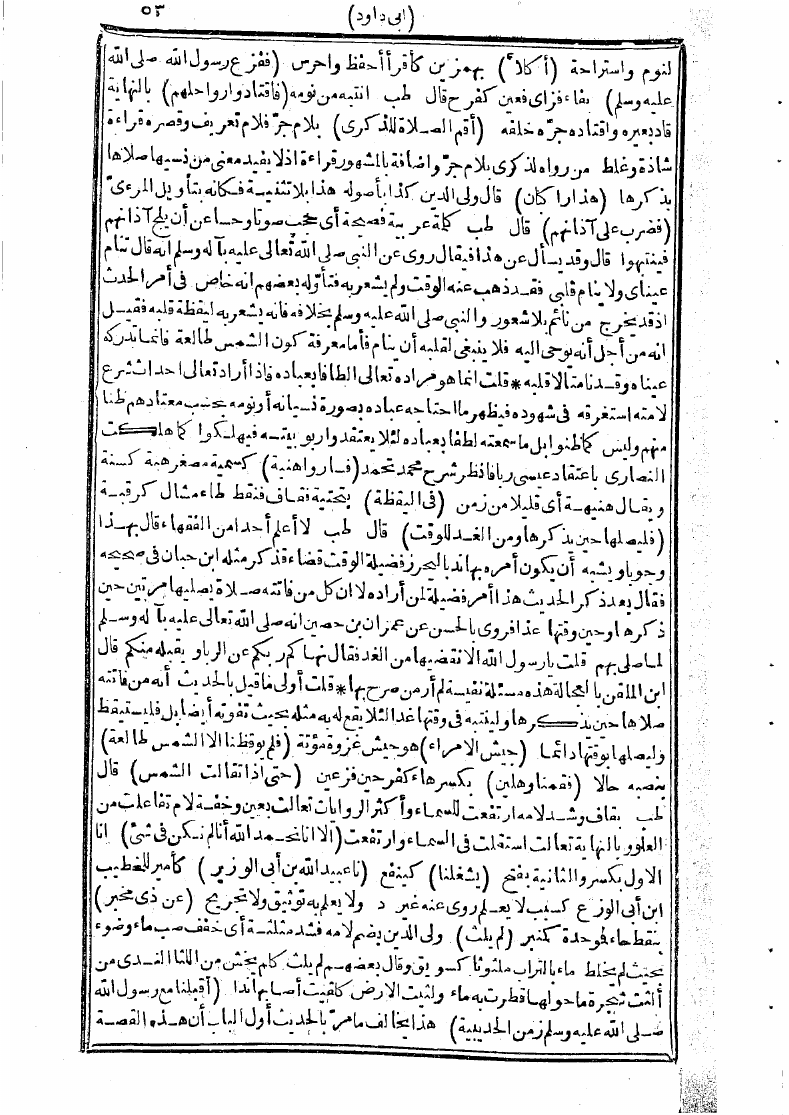 (ابى داود) ٥٣
لنوم واستراحة (أكلأ) بهمزين كأقرأ أحفظ واحرس (ففزع رسول الله صلى الله
عليه وسلم) بفاء فزاى فعين كفرح قال طب انتبه من نومه (فاقتادوا رواحلهم) بالنهاية
قاد بعيره واقتاده جرّه خلفه (أقم الصلاة للذكرى) بلام جرّ فلام تعريف وقصره قراءة
شاذة وغلط من رواه لذكرى بلام جرّ واضافة بالمشهور قراءة اذ لا يفيد معنى من نسيها صلاها
بذكرها (هذا را كان) قال ولى الدين كذا بأصوله هذا بلا تثنيسة فكانه بتأويل المرءى
(فضرب على آذانهم) قال طب كلمة عربية فصيحة أى حجب صوتا وحسا عن أن يلج آذانهم
فينتبهوا قال وقد يسأل عن هذا فيقال روى عن النبى صلى الله تعالى عليه بآله وسلم انه قال تنام
عيناى ولا ينام قلبى فقد ذهب عنه الوقت ولم يشعر به فتأوّله بعضهم انه خاص فى أمر الحدث
اذ قد يخرج من نائم بلا شعور والنبى صلى الله عليه وسلم بخلافه فانه يشعر به ليقظة قلبه فقيل
انه من أجل أنه يوحى اليه فلا ينبغى لقلبه أن ينام فأما معرفة كون الشمس طالعة فانما تدركه
عيناه وقد نامتا لا قلبه * قلت انما هو مراده تعالى الطافا بعباده فاذا أراد تعالى احداث شرع
لامته استغرقه فى شهوده فيظهر ما احتاجه عباده بصورة نسيانه أو نومه بحسب معتادهم ظنا
منهم وليس كما ظنوا بل ما سمعته لطفا بعباده لئلا يعتقدوا ربوبيته فيهلكوا كما هلكت
النصارى باعتقاد عيسى ربا فانظر شرح محمد تحمد (فساروا هنية) كسمية مصغر هنة كسنة
ويقال هنيهة أى قليلا من زمن (فى اليقظة) بتحتية فقاف فنقط ظاء مشال كرقبة
(فليصلها حين يذكرها ومن الغد للوقت) قال طب لا أعلم أحدا من الفقهاء قال بهذا
وجوبا ويشبه أن يكون أمره بها ندبا ليحرز فضيلة الوقت قضاء قذكر مثله ابن حبان فى صحيحه
فقال بعد ذكر الحديث هذا أمر فضيلة لمن أراده لا ان كل من فاتته صلاة يصليها مرتين حين
ذكرها وحين وقتها غدا فروى بالحسن عن عمران بن حصين انه صلى الله تعالى عليه بآله وسلم
لما صلى بهم قلت يا رسول الله الا نقضيها من الغد فقال نهاكم ربكم عن الربا ويقبله منكم قال
ابن الملقن با لعجالة هذه مسئلة نفيسة لم أر من صرح بها * قلت أولى ما قيل بالحديث أنه من فاتته
صلاها حين يذكرها ولينتبه فى وقتها غدا لئلا يقع له به مثله بحيث تفوته أيضا بل فليستيقظ
وليصلها بوقتها دائما (جيش الامراء) هو جيش غزوة مؤتة (فلم يوقظنا الا الشمس طالعة)
بنصبه حالا (فقمنا وهلين) بكسر هاء كفرحين فزعين (حتى اذا تقالت الشمس) قال
طب بقاف وشد لامه ارتفعت للسماء وأكثر الروايات تعالت بعين وخفة لام تفاعلت من
العلو وبالنهاية تعالت استقلت فى السماء وارتفعت (ألا انا نحمد الله أنا لم نكن فى شئ) انا
الاول بكسر والثانية بفتح (يشغلنا) كينفع (نا عبيد الله بن أبى الوزير) كأمير للخطيب
ابن أبى الوزع كسبب لا يعلم روى عنه غير د ولا يعلم به توثيق ولا تجريح (عن ذى مخبر)
بنقط خاء فوحدة كمنبر (لم يلث) ولى الدين بضم لامه فشد مثلثة أى خفف صب ماء وضوء
بحيث لم يخلط ماء بالتراب ملثوثا كسويق وقال بعضهم لم يلث كام يخش من اللثا الندى من
ألثت شجرة ما حولها قطرت به ماء ولثيت الارض كلقيت أصابها ندا (أقبلنا مع رسول الله
صلى الله عليه وسلم زمن الحديبية) هذا يخالف ما مرّ بالحديث أول الباب أن هذه القصة